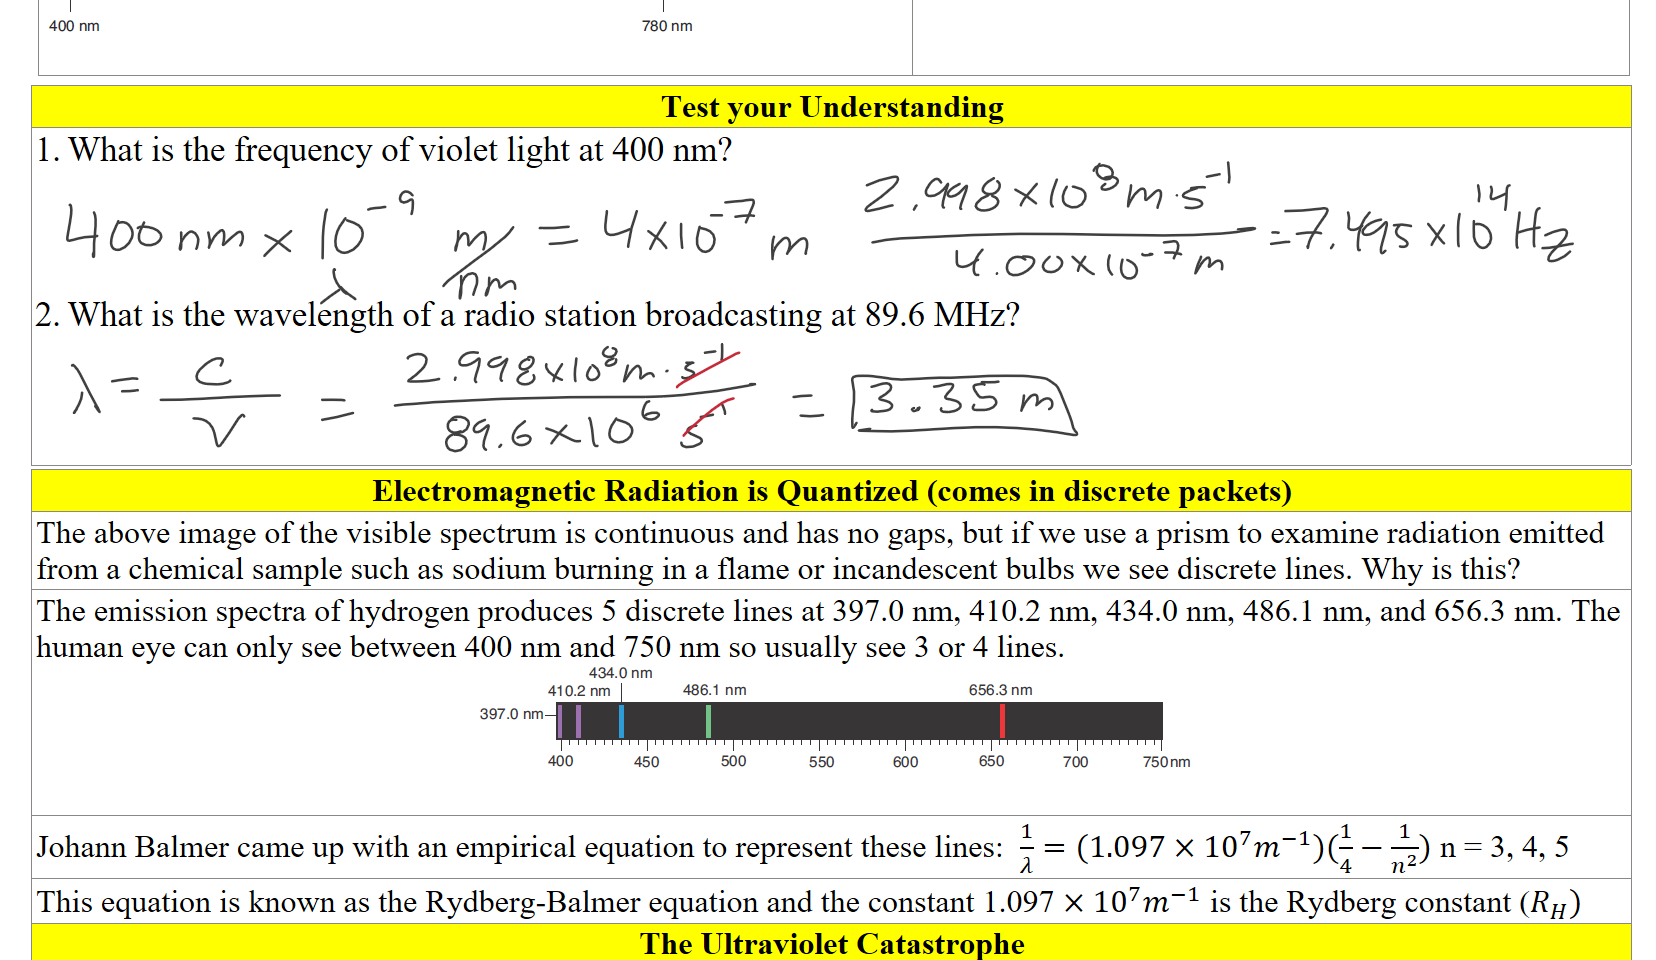 400 nm 780 nm
Test your Understanding
1. What is the frequency of violet light at 400 nm?
400 nm × 10⁻⁹ m/nm = 4×10⁻⁷ m 2.998×10⁸ m·s⁻¹ / 4.00×10⁻⁷ m = 7.495×10¹⁴ Hz
λ
2. What is the wavelength of a radio station broadcasting at 89.6 MHz?
λ = c/ν = 2.998×10⁸ m·s⁻¹ / 89.6×10⁶ s⁻¹ = 3.35 m
Electromagnetic Radiation is Quantized (comes in discrete packets)
The above image of the visible spectrum is continuous and has no gaps, but if we use a prism to examine radiation emitted
from a chemical sample such as sodium burning in a flame or incandescent bulbs we see discrete lines. Why is this?
The emission spectra of hydrogen produces 5 discrete lines at 397.0 nm, 410.2 nm, 434.0 nm, 486.1 nm, and 656.3 nm. The
human eye can only see between 400 nm and 750 nm so usually see 3 or 4 lines.
434.0 nm
410.2 nm 486.1 nm 656.3 nm
397.0 nm
400 450 500 550 600 650 700 750 nm
Johann Balmer came up with an empirical equation to represent these lines: 1/λ = (1.097 × 10⁷m⁻¹)(1/4 − 1/n²) n = 3, 4, 5
This equation is known as the Rydberg-Balmer equation and the constant 1.097 × 10⁷m⁻¹ is the Rydberg constant (R_H)
The Ultraviolet Catastrophe